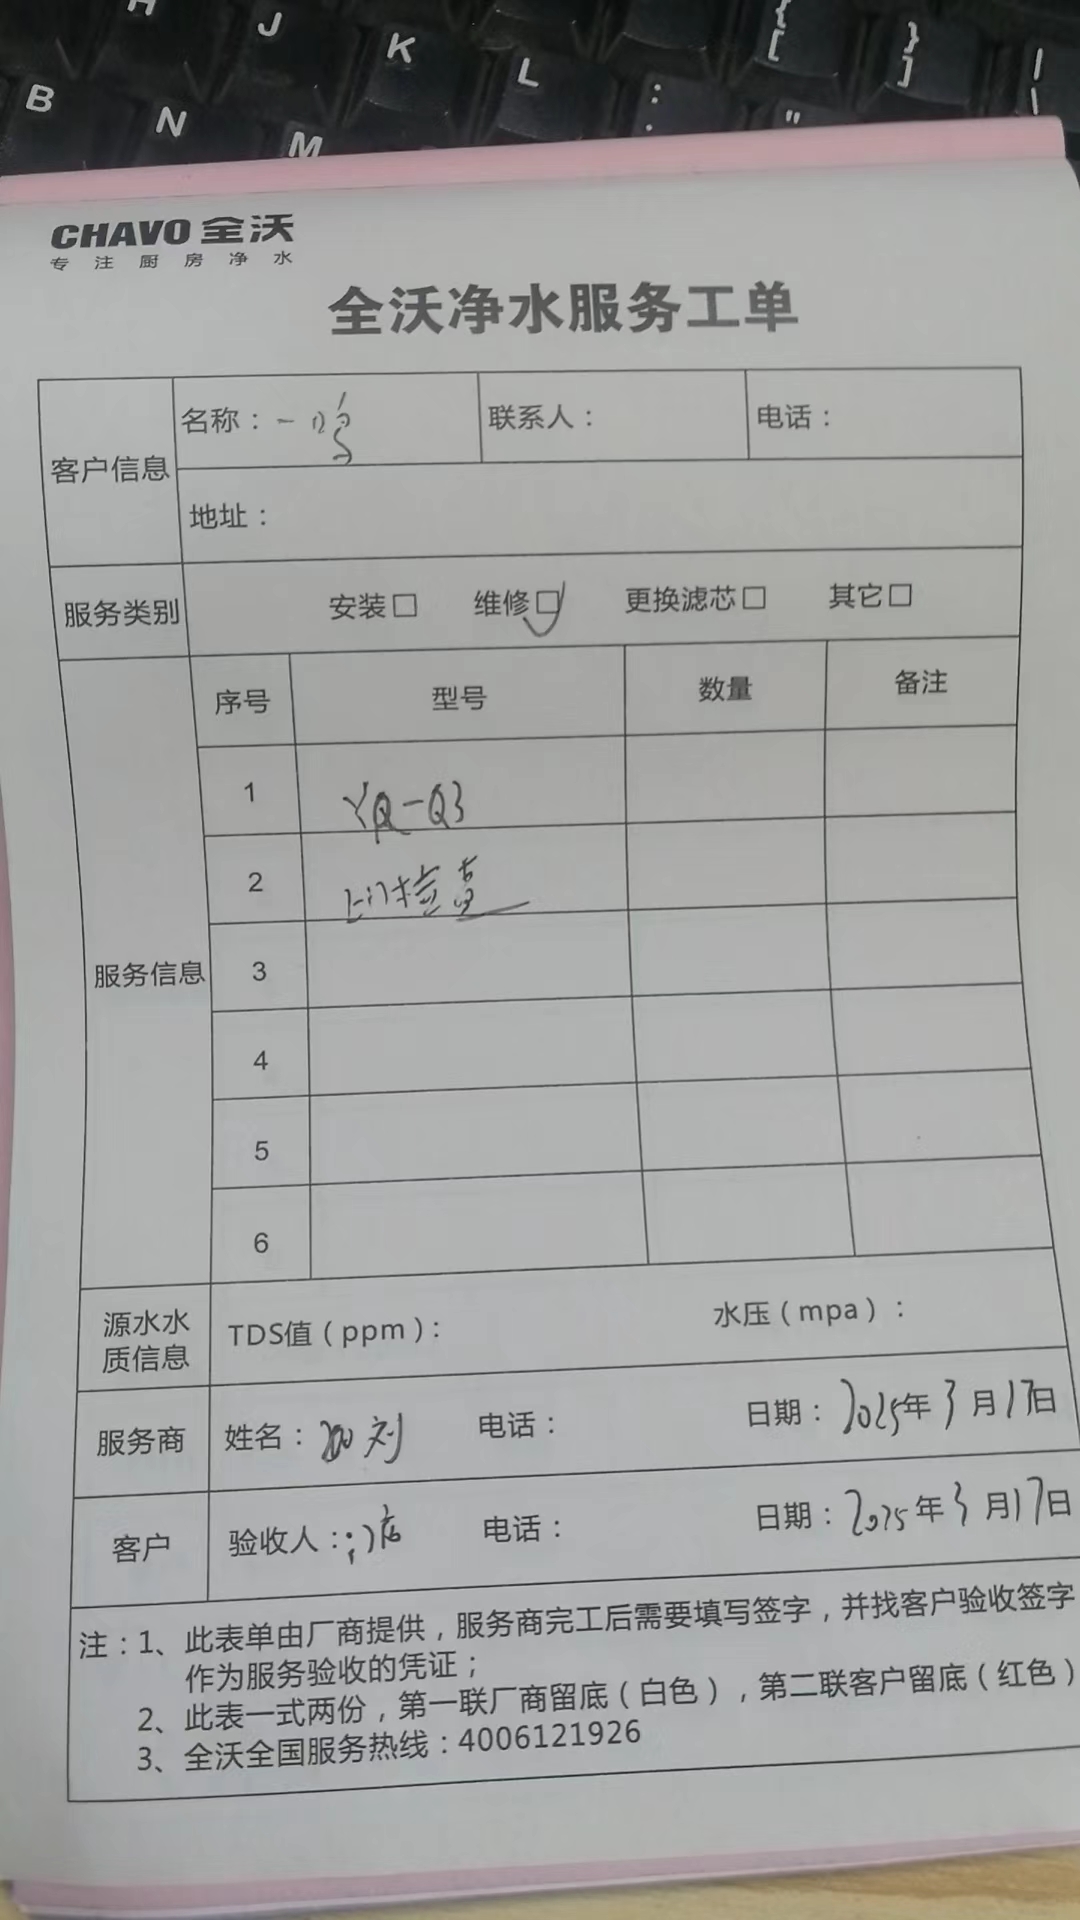 H J K L { [ } ] | \
B N M : ; "
CHAVO 全沃
专注厨房净水
全沃净水服务工单
客户信息 名称：一鸣 联系人： 电话：
地址：
服务类别 安装□ 维修☑ 更换滤芯□ 其它□
服务信息 序号 型号 数量 备注
1 YQ-Q3
2 上门检查
3
4
5
6
源水水质信息 TDS值（ppm）： 水压（mpa）：
服务商 姓名：刘 电话： 日期：2025年3月17日
客户 验收人： 电话： 日期：2025年3月17日
注：1、此表单由厂商提供，服务商完工后需要填写签字，并找客户验收签字
作为服务验收的凭证；
2、此表一式两份，第一联厂商留底（白色），第二联客户留底（红色）
3、全沃全国服务热线：4006121926